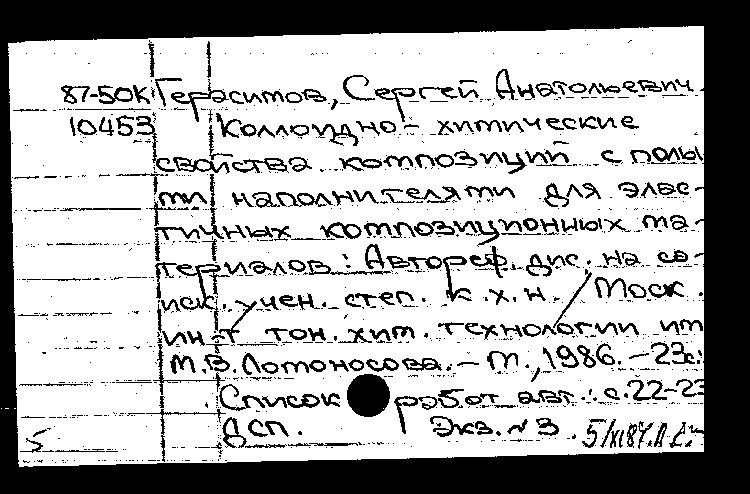 87-50К Герасимов, Сергей Анатольевич.
10453 Коллоидно-химические
свойства композиций с полы
ми наполнителями для элас-
тичных композиционных ма-
териалов: Автореф. дис. на со-
иск. учен. степ. к.х.н. / Моск.
ин-т тон. хим. технологии им
М.В. Ломоносова. - М., 1986. - 23с.:
Список работ авт.: с.22-23
ДСП. Экз. № 3.
5